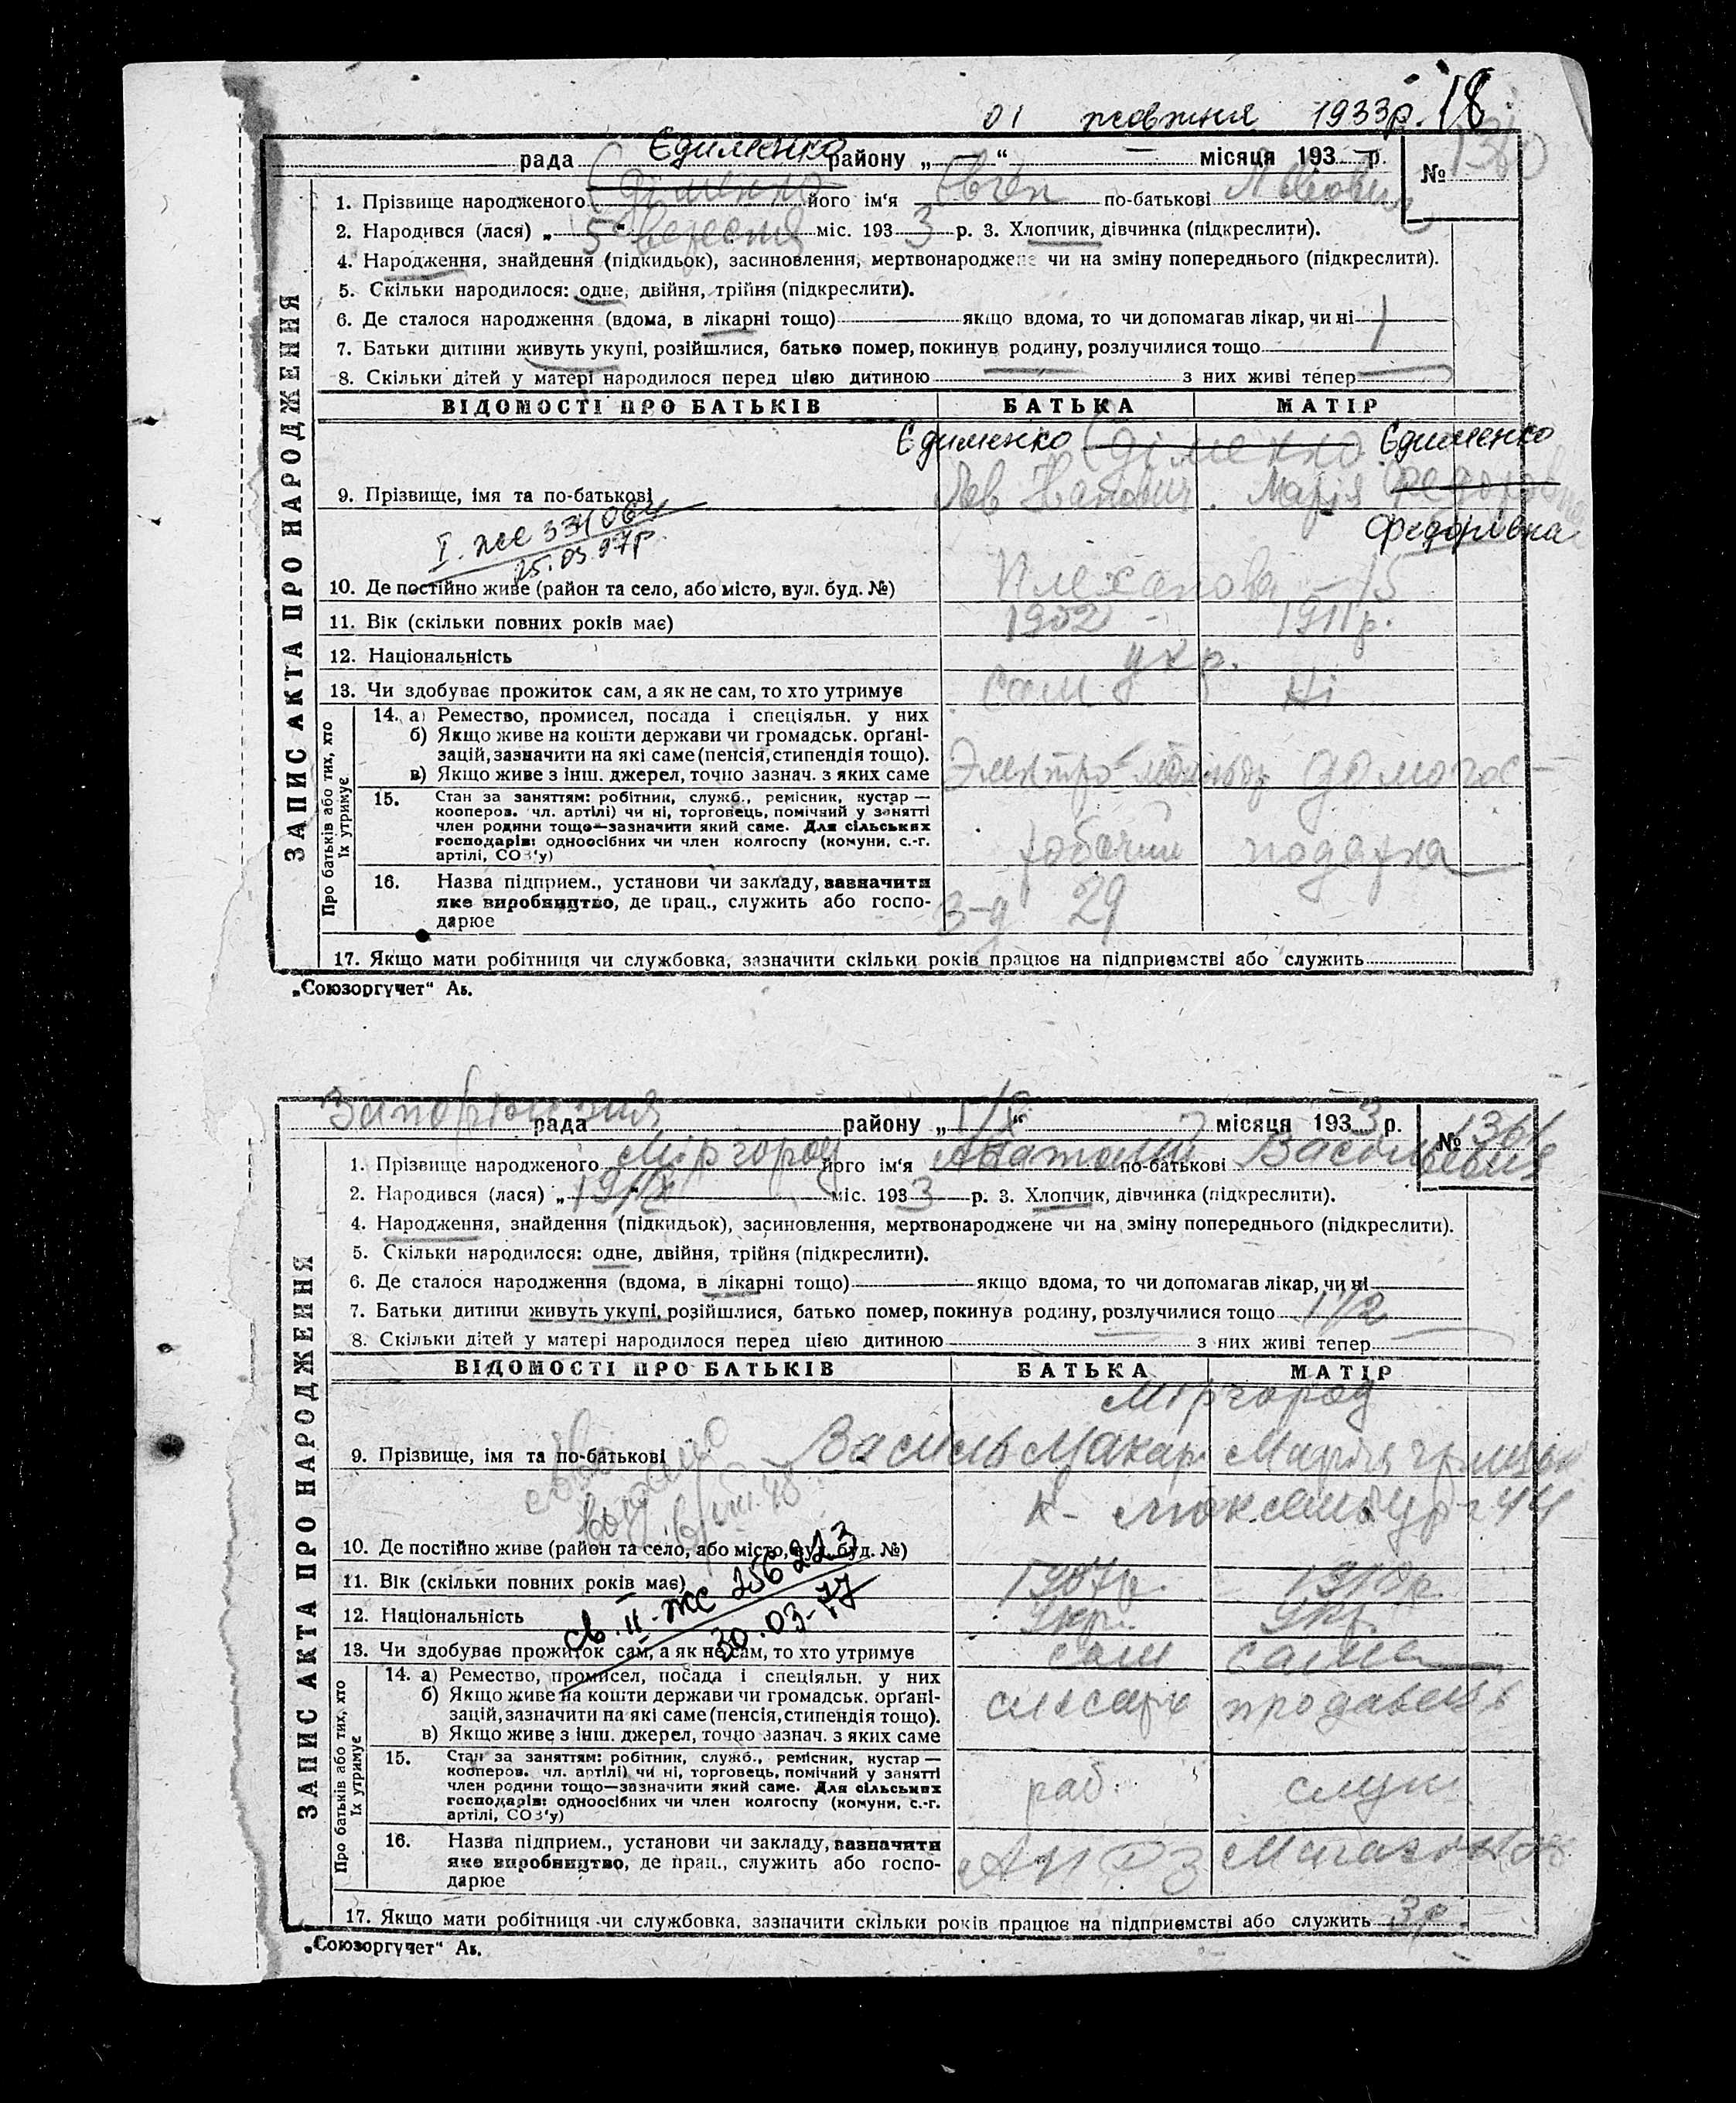 01 жовтня 1933р. 18
Єдименко
рада району „ “ місяця 193 р. № 1360
1. Прізвище народженого Єдіменко його ім'я Євген по-батькові Львович
2. Народився (лася) „ 5 “ вересня міс. 1933 р. 3. Хлопчик, дівчинка (підкреслити).
4. Народження, знайдення (підкидьок), засиновлення, мертвонароджене чи на зміну попереднього (підкреслити).
5. Скільки народилося: одне, двійня, трійня (підкреслити).
6. Де сталося народження (вдома, в лікарні тощо) якщо вдома, то чи допомагав лікар, чи ні
7. Батьки дитини живуть укупі, розійшлися, батько помер, покинув родину, розлучилися тощо
8. Скільки дітей у матері народилося перед цією дитиною з них живі тепер
ЗАПИС АКТА ПРО НАРОДЖЕННЯ
ВІДОМОСТІ ПРО БАТЬКІВ БАТЬКА МАТІР
Єдименко Єдіменко Єдименко
9. Прізвище, імя та по-батькові Лев Марія Федоровна
I. ЖС 331064 Федорівна
25.03.97р.
10. Де постійно живе (район та село, або місто, вул. буд. №) Плеханова – 15
11. Вік (скільки повних років має) 1902 - 1911р.
12. Національність укр.
13. Чи здобуває прожиток сам, а як не сам, то хто утримує сам Ні
Про батьків або тих, хто їх утримує
14. а) Ремество, промисел, посада і спеціяльн. у них
б) Якщо живе на кошти держави чи громадськ. органі-
зацій, зазначити на які саме (пенсія, стипендія тощо).
в) Якщо живе з інш. джерел, точно зазнач. з яких саме Электро- домогос-
15. Стан за заняттям: робітник, служб., ремісник, кустар —
кооперов. чл. артілі) чи ні, торговець, помічний у занятті
член родини тощо—зазначити який саме. Для сільських
господарів: одноосібних чи член колгоспу (комуни, с.-г.
артілі, СОЗ'у) робочий подарка
16. Назва підприєм., установи чи закладу, зазначити
яке виробництво, де прац., служить або госпо-
дарює З-д 29
17. Якщо мати робітниця чи службовка, зазначити скільки років працює на підприємстві або служить
„Союзоргучет“ Аь.
Запоріжжя
рада району „ 1/X “ місяця 1933 р. № 1361
1. Прізвище народженого Міргород його ім'я Анатолій по-батькові Васильевич
2. Народився (лася) „ 19/IX “ міс. 1933 р. 3. Хлопчик, дівчинка (підкреслити).
4. Народження, знайдення (підкидьок), засиновлення, мертвонароджене чи на зміну попереднього (підкреслити).
5. Скільки народилося: одне, двійня, трійня (підкреслити).
6. Де сталося народження (вдома, в лікарні тощо) якщо вдома, то чи допомагав лікар, чи ні
7. Батьки дитини живуть укупі, розійшлися, батько помер, покинув родину, розлучилися тощо 1/2
8. Скільки дітей у матері народилося перед цією дитиною з них живі тепер
ЗАПИС АКТА ПРО НАРОДЖЕННЯ
ВІДОМОСТІ ПРО БАТЬКІВ БАТЬКА МАТІР
Міргород
9. Прізвище, імя та по-батькові Василь Макар. Марія
К- Люксембург 44
10. Де постійно живе (район та село, або місто, вул. буд. №)
11. Вік (скільки повних років має) 1907р. 1910р.
св. II-ЖС 256223
30.03-77
12. Національність Укр. Укр.
13. Чи здобуває прожиток сам, а як не сам, то хто утримує сам сама
Про батьків або тих, хто їх утримує
14. а) Ремество, промисел, посада і спеціяльн. у них
б) Якщо живе на кошти держави чи громадськ. органі-
зацій, зазначити на які саме (пенсія, стипендія тощо).
в) Якщо живе з інш. джерел, точно зазнач. з яких саме слюсарь продавець
15. Стан за заняттям: робітник, служб., ремісник, кустар —
кооперов. чл. артілі) чи ні, торговець, помічний у занятті
член родини тощо—зазначити який саме. Для сільських
господарів: одноосібних чи член колгоспу (комуни, с.-г.
артілі, СОЗ'у) раб. служ
16. Назва підприєм., установи чи закладу, зазначити
яке виробництво, де прац., служить або госпо-
дарює
17. Якщо мати робітниця чи службовка, зазначити скільки років працює на підприємстві або служить 3р.
„Союзоргучет“ Аь.